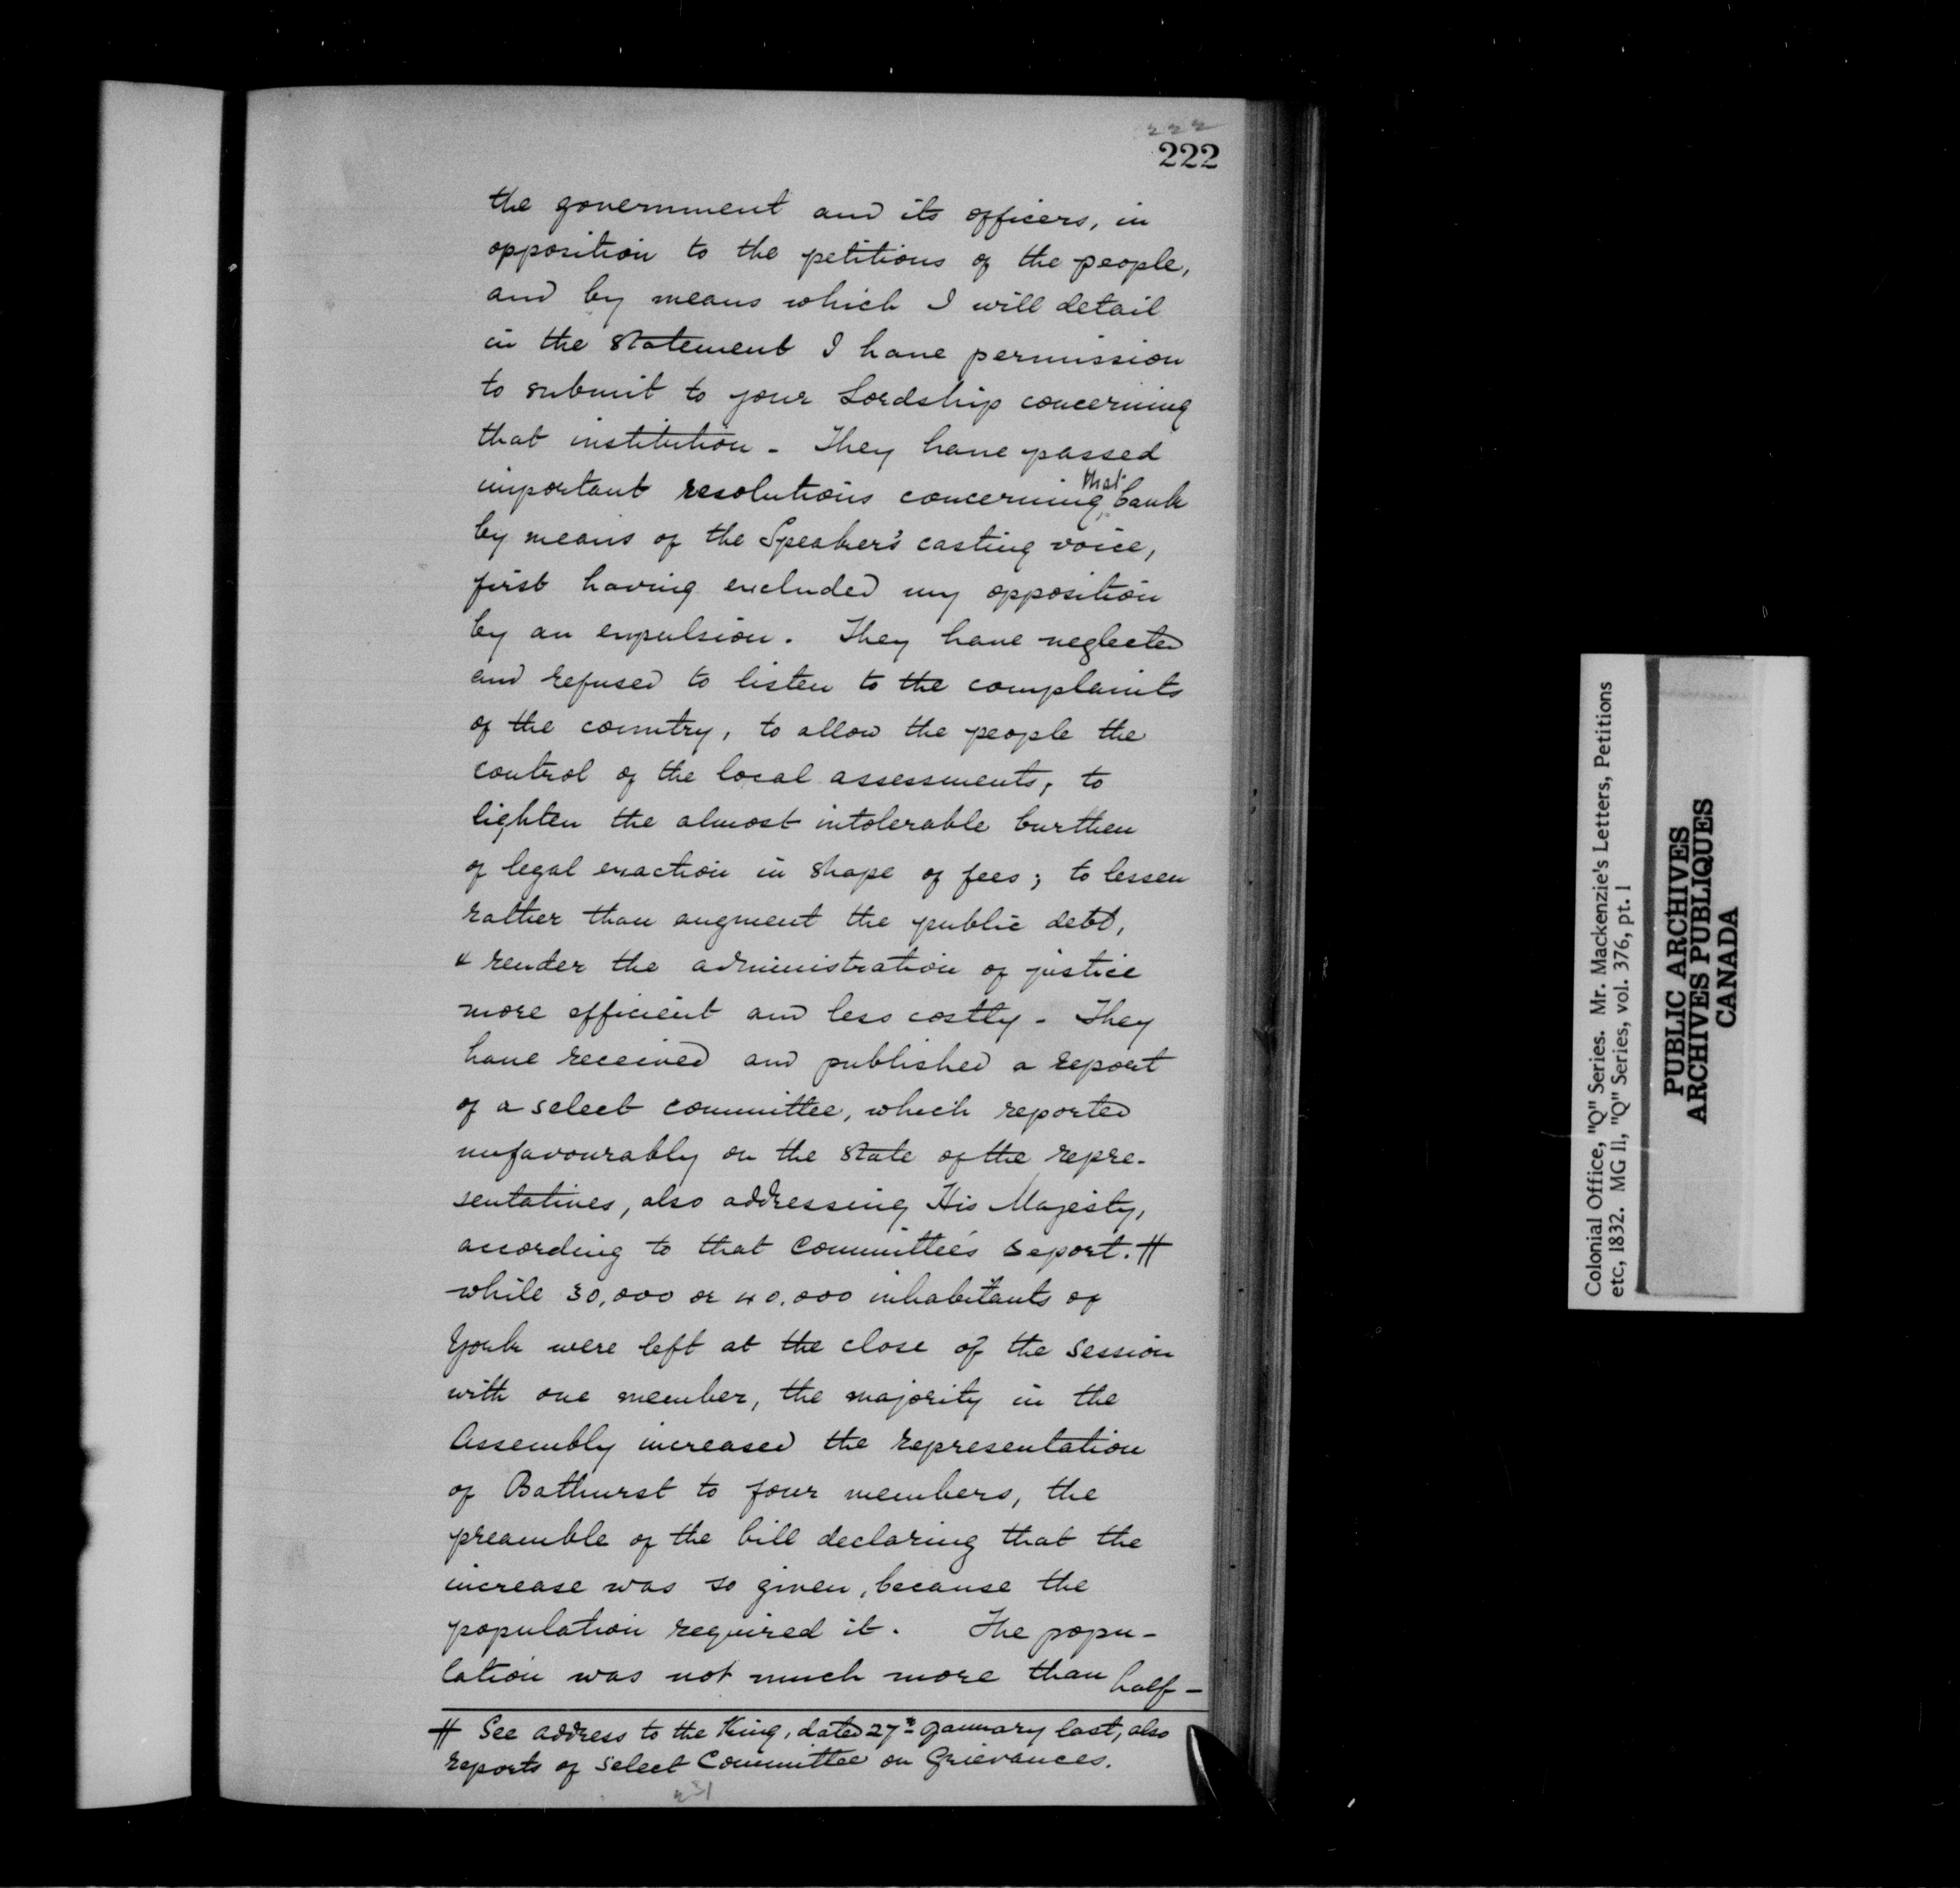 222
222
the government and its officers, in
opposition to the petitions of the people,
and by means which I will detail
in the statement I have permission
to submit to your Lordship concerning
that institution - They have passed
important resolutions concerning that bank
by means of the Speaker's casting voice,
first having excluded my opposition
by an expulsion. They have neglected
and refused to listen to the complaints
of the country, to allow the people the
control of the local assessments, to
lighten the almost intolerable burthen
of legal exaction in shape of fees; to lessen
rather than augment the public debt,
& render the administration of justice
more efficient and less costly - They
have received and published a report
of a select committee, which reported
unfavourably on the state of the repre-
sentatives, also addressing His Majesty,
according to that Committee's report. #
while 30,000 or 40,000 inhabitants of
York were left at the close of the session
with one member, the majority in the
Assembly increased the representation
of Bathurst to four members, the
preamble of the bill declaring that the
increase was so given, because the
population required it. The popu-
lation was not much more than half -
# See address to the King, dated 27th January last, also
reports of Select Committee on Grievances.
231
Colonial Office, "Q" Series. Mr. Mackenzie's Letters, Petitions
etc, 1832. MG 11, "Q" Series, vol. 376, pt. 1
PUBLIC ARCHIVES
ARCHIVES PUBLIQUES
CANADA